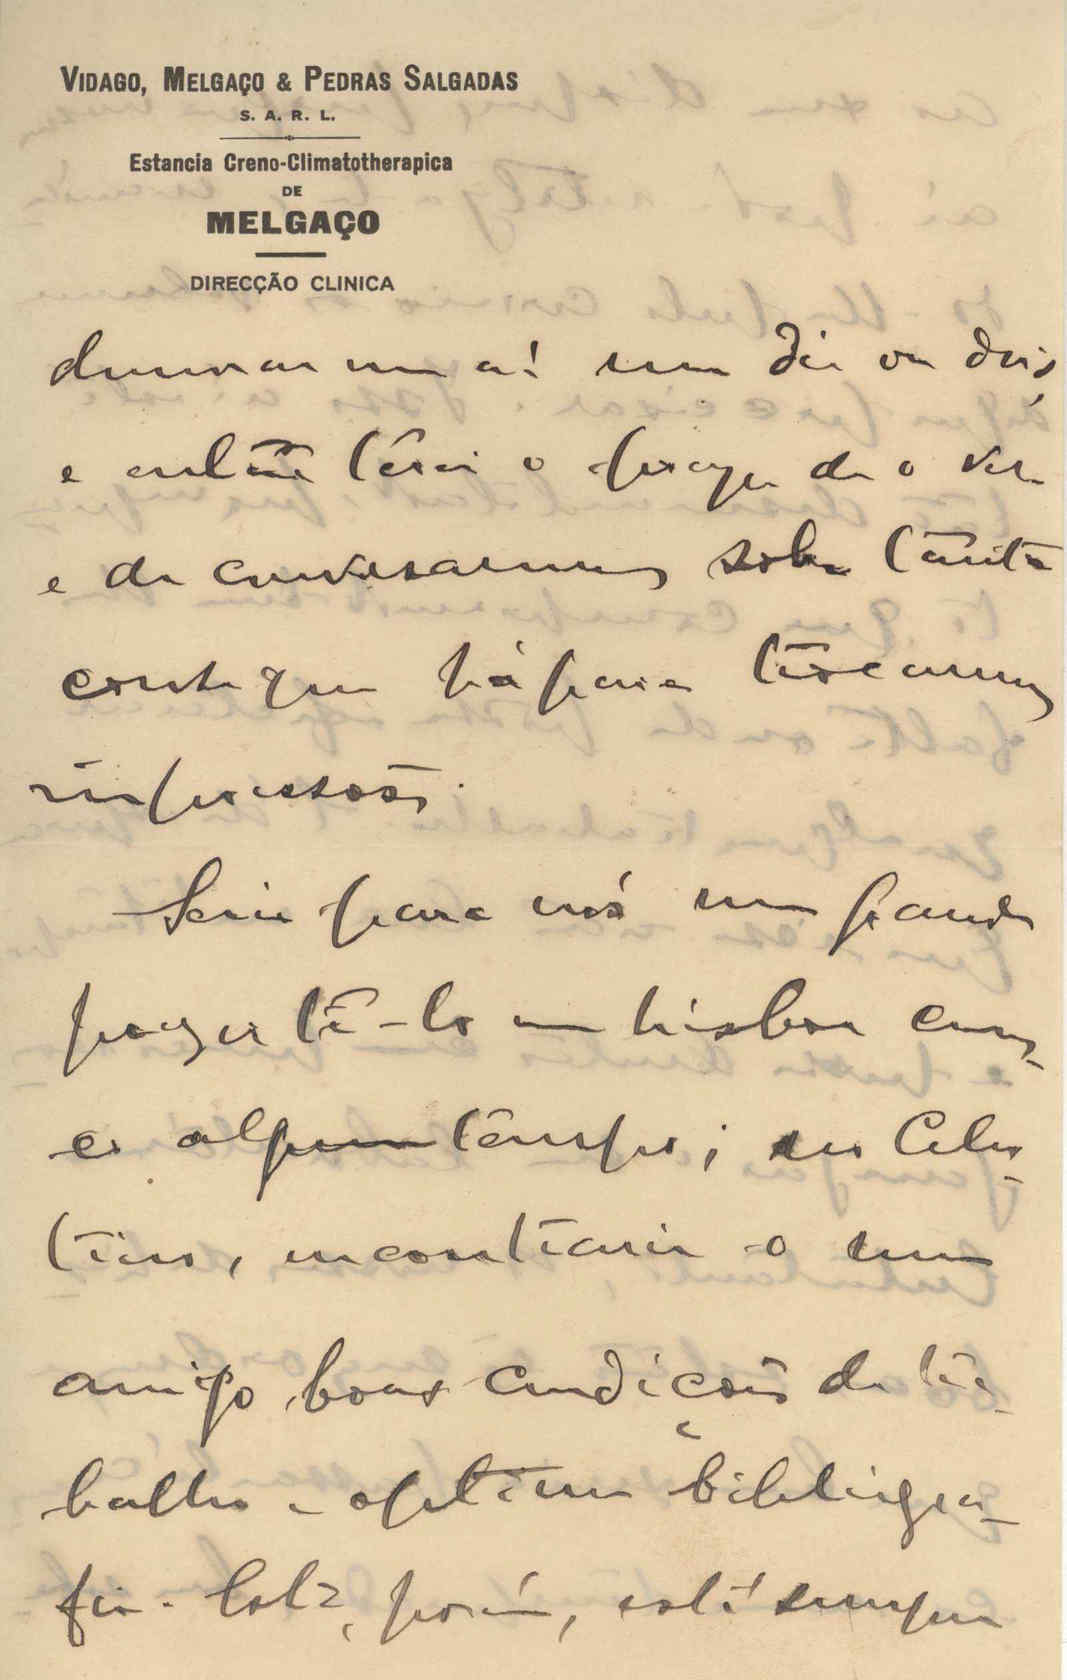 VIDAGO, MELGAÇO & PEDRAS SALGADAS
S. A. R. L.
Estancia Creno-Climatotherapica
DE
MELGAÇO
DIRECÇÃO CLINICA
um dia ou dois,
e então terei o prazer de o ver
e de conversarmos sobre tanta
coisa que há para trocarmos
impressões.
Seria para nós um grande
prazer tê-lo em Lisboa com-
algum tempo; no Celes-
tino, encontraria o meu
amigo boas condições de tra-
balho e optima bibliogra-
fia. porém, está sempre